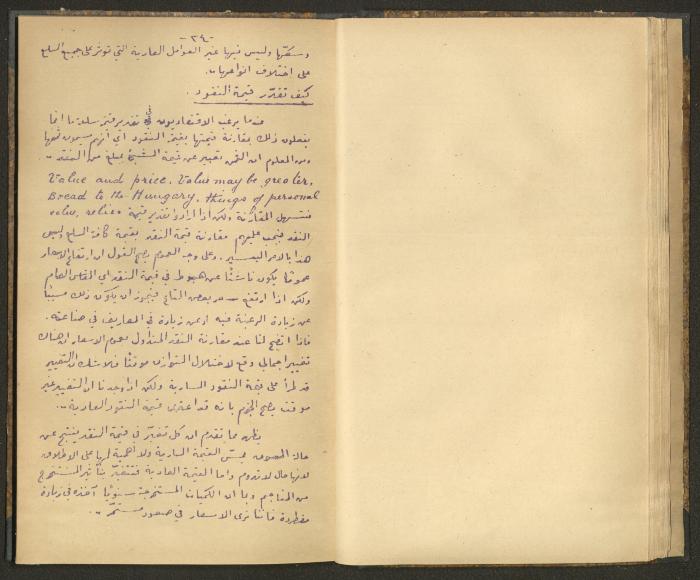 -٣٤-
وسكتها وليس فيها غير العوامل العادية التي تؤثر على جميع السلع
على اختلاف انواعها ..
كيف تقدّر قيمة النقود .
عندما يرغب الاقتصاديون في تقدير قيمة سلعة ما انما
يفعلون ذلك بمقارنة قيمتها بقيمة النقود اي أنهم يسمون ثمنها
ومن المعلوم ان الثمن تعبير عن قيمة الشيء بمبلغ من النقد ..
Value and price. Value may be greater.
Bread to the Hungary. things of personal
value, relics فتسهل المقارنة ولكن اذا ارادوا تقدير قيمة
النقد فيجب عليهم مقارنة قيمة النقد بقيمة كافة السلع وليس
هذا بالامر اليسير . وعلى وجه العموم يصح القول ان ارتفاع الاسعار
عموما يكون ناشئا عن هبوط في قيمة النقد اي المقياس العام
ولكن اذا ارتفع سعر بعض السلع فيجوز ان يكون ذلك مسببا
عن زيادة الرغبة فيه او عن زيادة في المصاريف في صناعته .
فاذا اتضح لنا عند مقارنة النقد المتداول بعموم الاسعار ان هناك
تغيير اجمالي وقع لاختلال التوازن موقتا فلا شك ان التغيير
قد طرأ على قيمة النقود السارية ولكن اذا وجدنا ان التغيير غير
موقت يصح الجزم بانه قد اعترى قيمة النقود العادية ..
يظهر مما تقدم ان كل تغير في قيمة النقد ينتج عن
حالة السوق يمس القيمة السارية ولا اهمية لها على الاطلاق
لانها حال لا تدوم واما القيمة العادية فتتغير بتأثير المستخرج
من المناجم وبما ان الكميات المستخرجة سنويا آخذه في زيادة
مضطردة فاننا نرى الاسعار في صعود مستمر ..